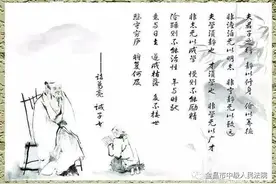 夫君子之行 静以修身 俭以养德
非淡泊无以明志 非宁静无以致远
夫学须静也 才须学也 非学无以广才
非志无以成学 慢则不能励精
险躁则不能治性 年与时驰
意与日去 遂成枯落 多不接世
悲守穷庐 将复何及
——诸葛亮 诫子书
金昌市中级人民法院